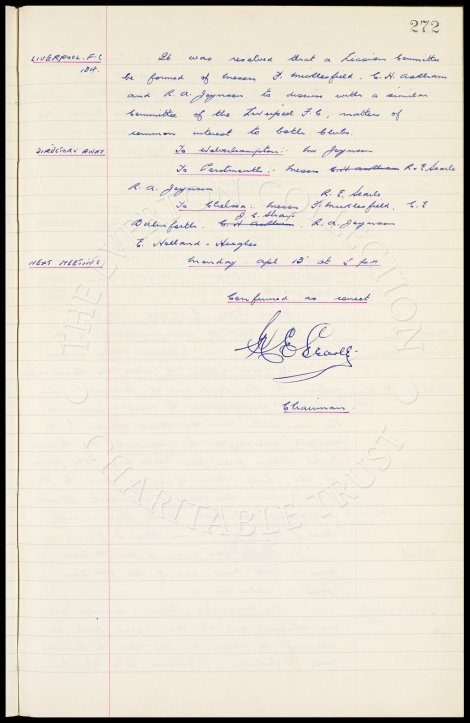 272
LIVERPOOL. F.C It was resolved that a Liaison Committee
be formed of Messrs F. Micklesfield, C. H. Askham
and R. A. Joynson to discuss with a similar
Committee of the Liverpool F.C. matters of
common interest to both Clubs.
DIRECTORS AWAY To Wolverhampton:- Mr Joynson
To Portsmouth:- Messrs C. H. Askham R. E. Searle
R. A. Joynson R. E. Searle
To Chelsea:- Messrs F. Micklesfield, C. E
Balmforth, J. C. Sharp C. H. Askham, R. A. Joynson
E. Holland-Hughes
NEXT MEETING Monday Apl 13 at 5 p.m
Confirmed as correct
R E Searle
Chairman.
THE EVERTON COLLECTION
CHARITABLE TRUST